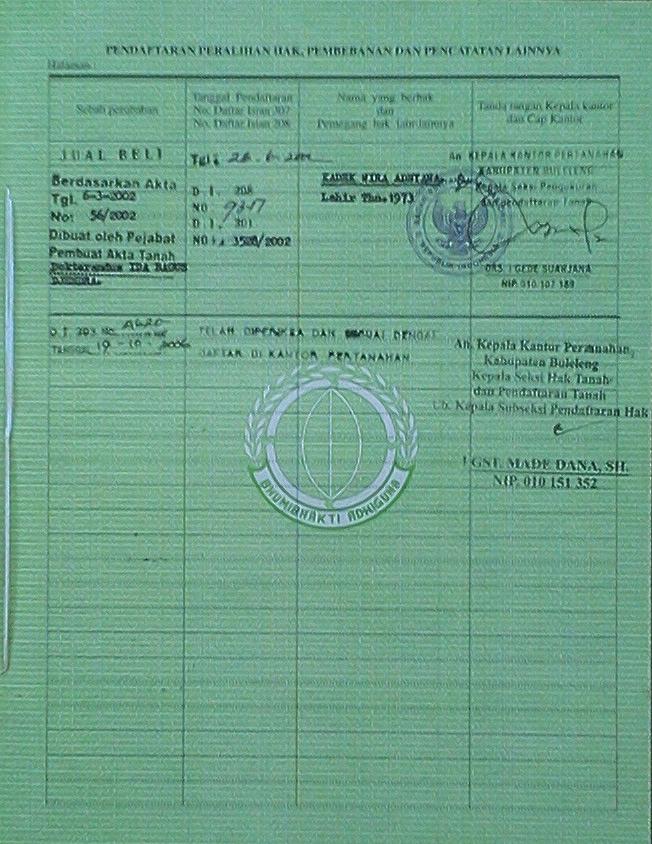 PENDAFTARAN PERALIHAN HAK, PEMBEBANAN DAN PENCATATAN LAINNYA
Halaman :
Sebab perubahan
Tanggal Pendaftaran
No. Daftar Isian 307
No. Daftar Isian 208
Nama yang berhak
dan
Pemegang hak lain-lainnya
Tanda tangan Kepala kantor
dan Cap Kantor
JUAL BELI
Berdasarkan Akta
Tgl. 6-3-2002
No: 56/2002
Dibuat oleh Pejabat
Pembuat Akta Tanah
Doktorandus IDA BAGUS
Tgl :
D I. 208
NO
D I. 301
NO : 3528/2002
KADEK WIRA ADNYANA.
Lahir Thn.1973
An. KEPALA KANTOR PERTANAHAN
KABUPATEN BULELENG
Kepala Seksi Pengukuran
dan Pendaftaran Tanah
DRS. I GEDE SUARJANA
NIP. 010.107.189
TANGGAL 19-10-2006
TELAH DIPERIKSA DAN SESUAI DENGAN
DAFTAR DI KANTOR PERTANAHAN
An. Kepala Kantor Pertanahan
Kabupaten Buleleng
Kepala Seksi Hak Tanah
dan Pendaftaran Tanah
Ub. Kepala Subseksi Pendaftaran Hak
I GST. MADE DANA, SH.
NIP. 010 151 352
BHUMIBHAKTI ADHIGUNA